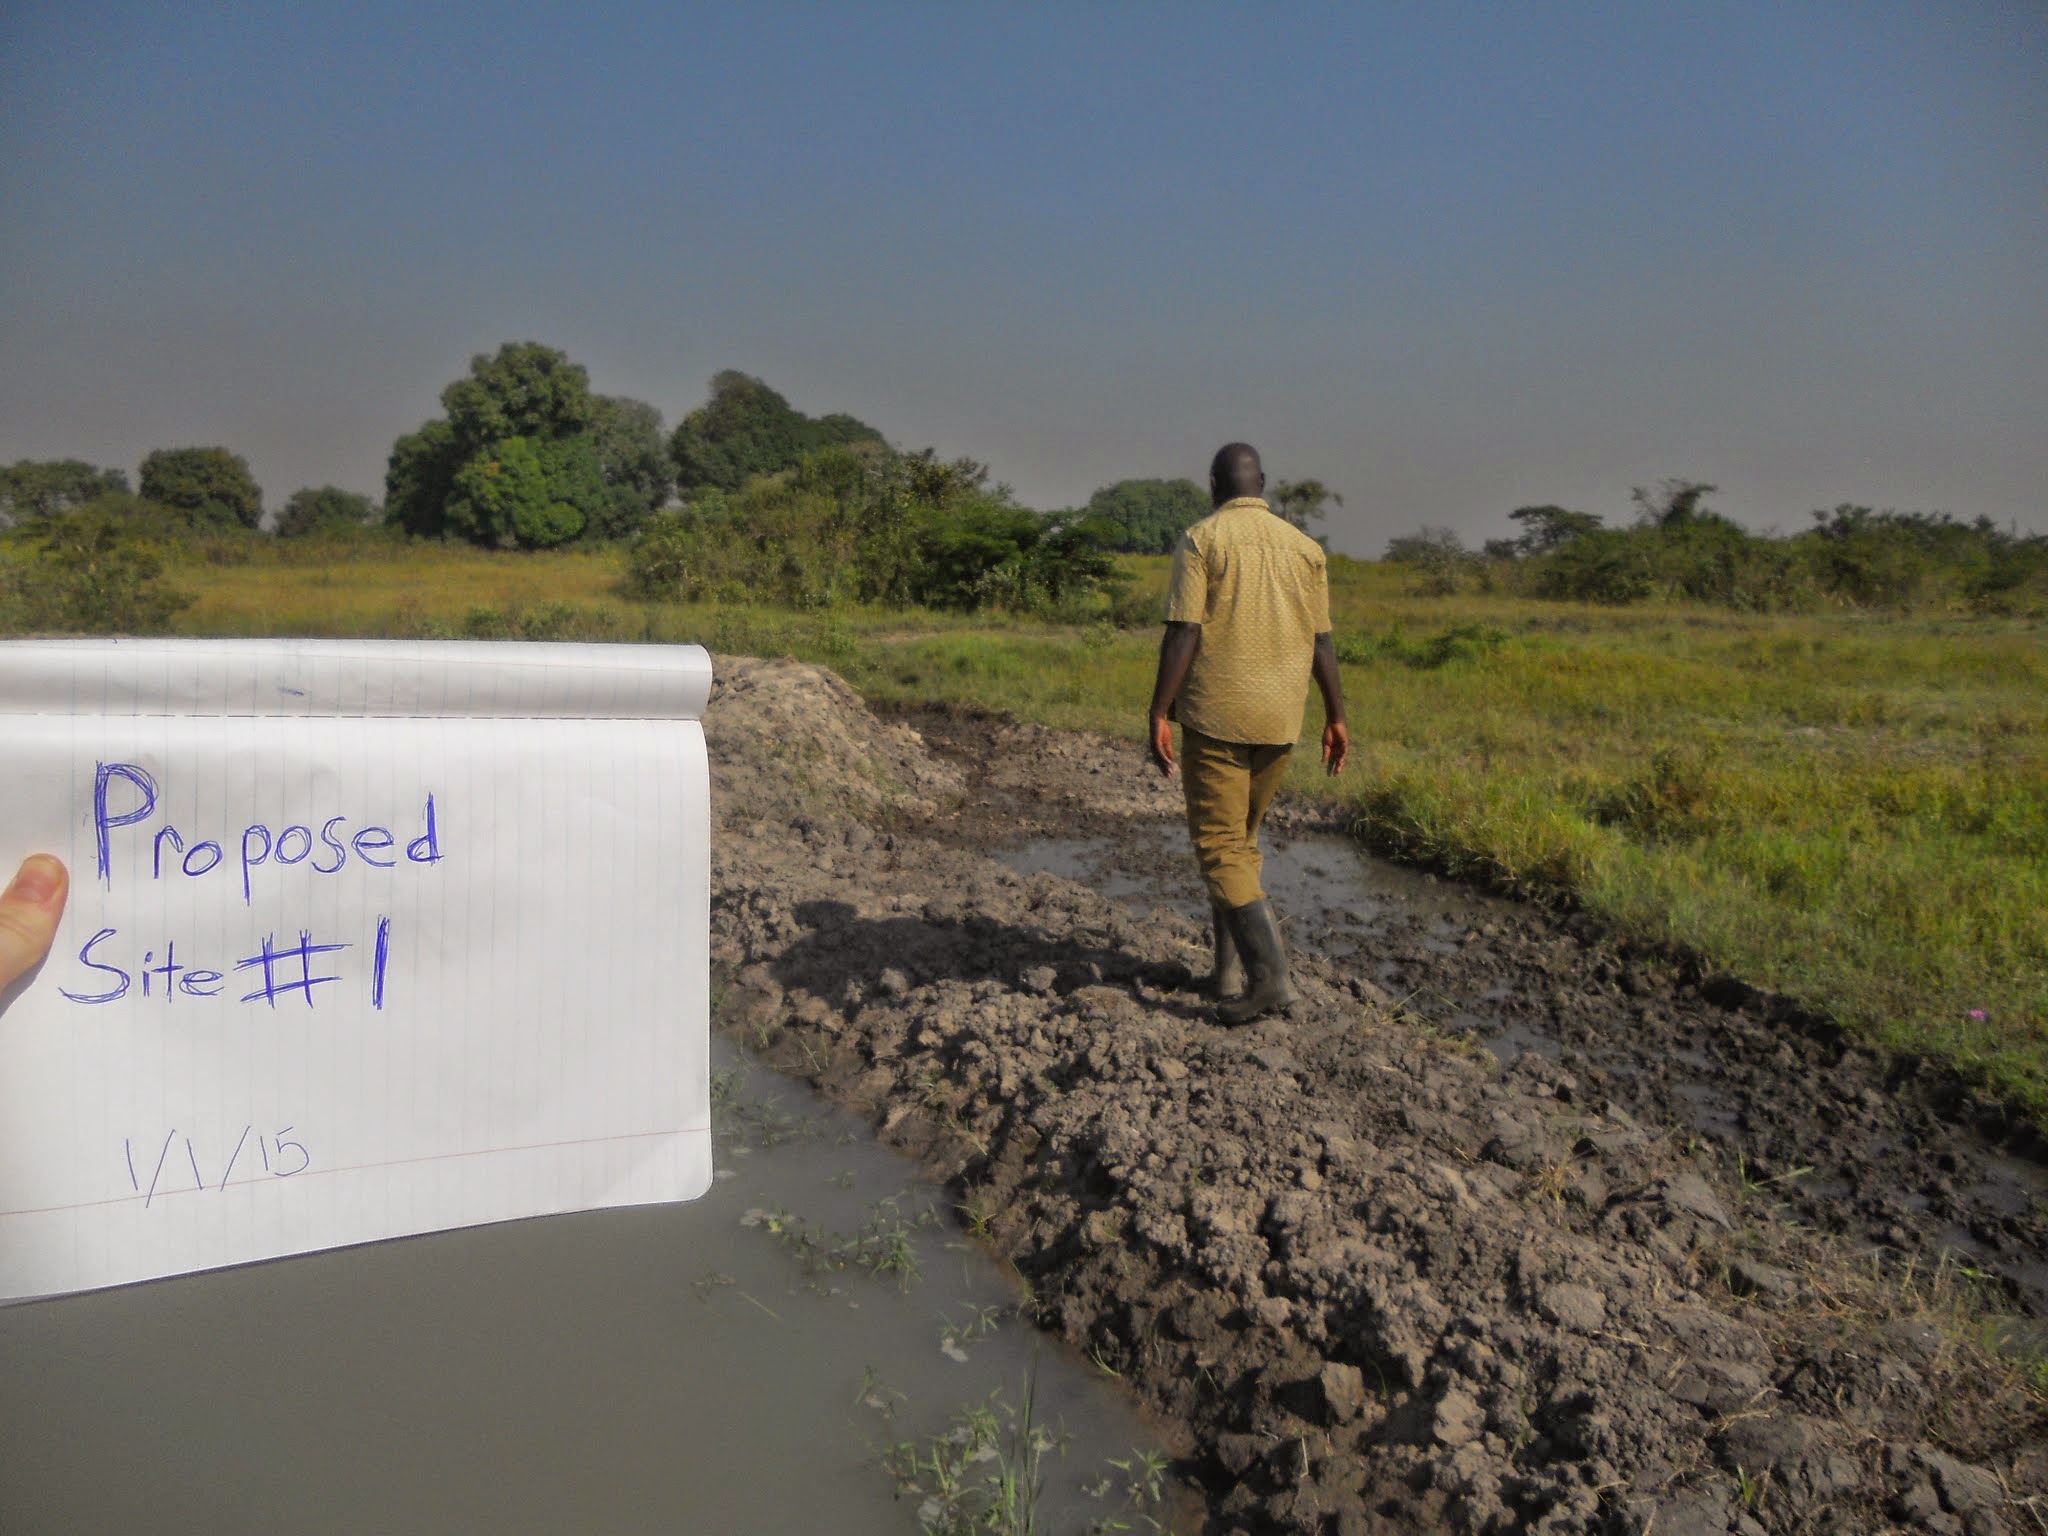 Proposed
Site #1
1/1/15